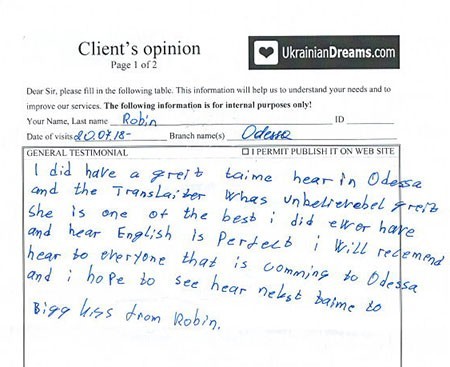 Client's opinion
Page 1 of 2
UkrainianDreams.com
Dear Sir, please fill in the following table. This information will help us to understand your needs and to
improve our services. The following information is for internal purposes only!
Your Name, Last name Robin ID
Date of visits 20.07.18- Branch name(s) Odessa
GENERAL TESTIMONIAL ☐ I PERMIT PUBLISH IT ON WEB SITE
I did have a greit taime hear in Odessa
and the Translaiter whas unbelievebel greit
she is one of the best i did ewor have
and hear English is Perfect i will recemend
hear to everyone that is comming to Odessa
and i hope to see hear nekst taime to
Bigg kiss from Robin.